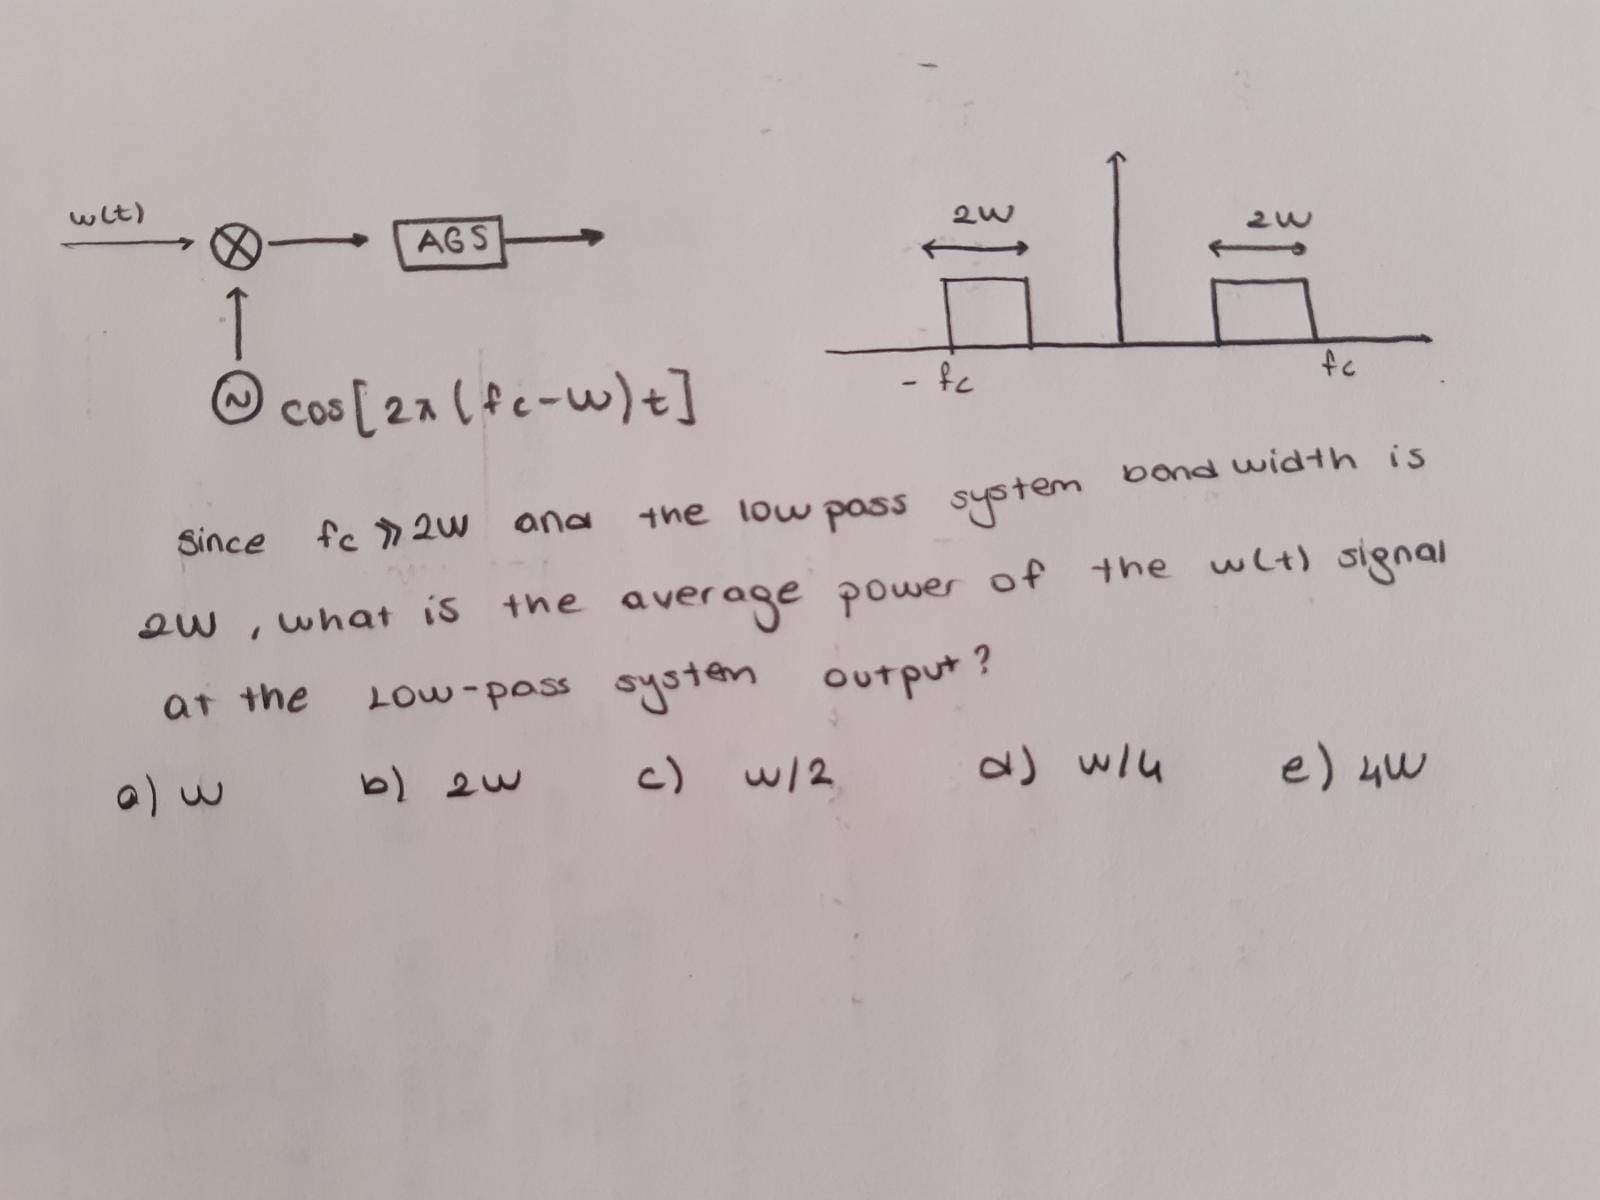 w(t)
AGS
cos[2π(fc-w)t]
2w
2w
- fc
fc
since fc >> 2w and the low pass system band width is
2w, what is the average power of the w(t) signal
at the Low-pass system output?
a) w b) 2w c) w/2 d) w/4 e) 4w